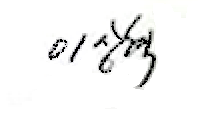 이상혁